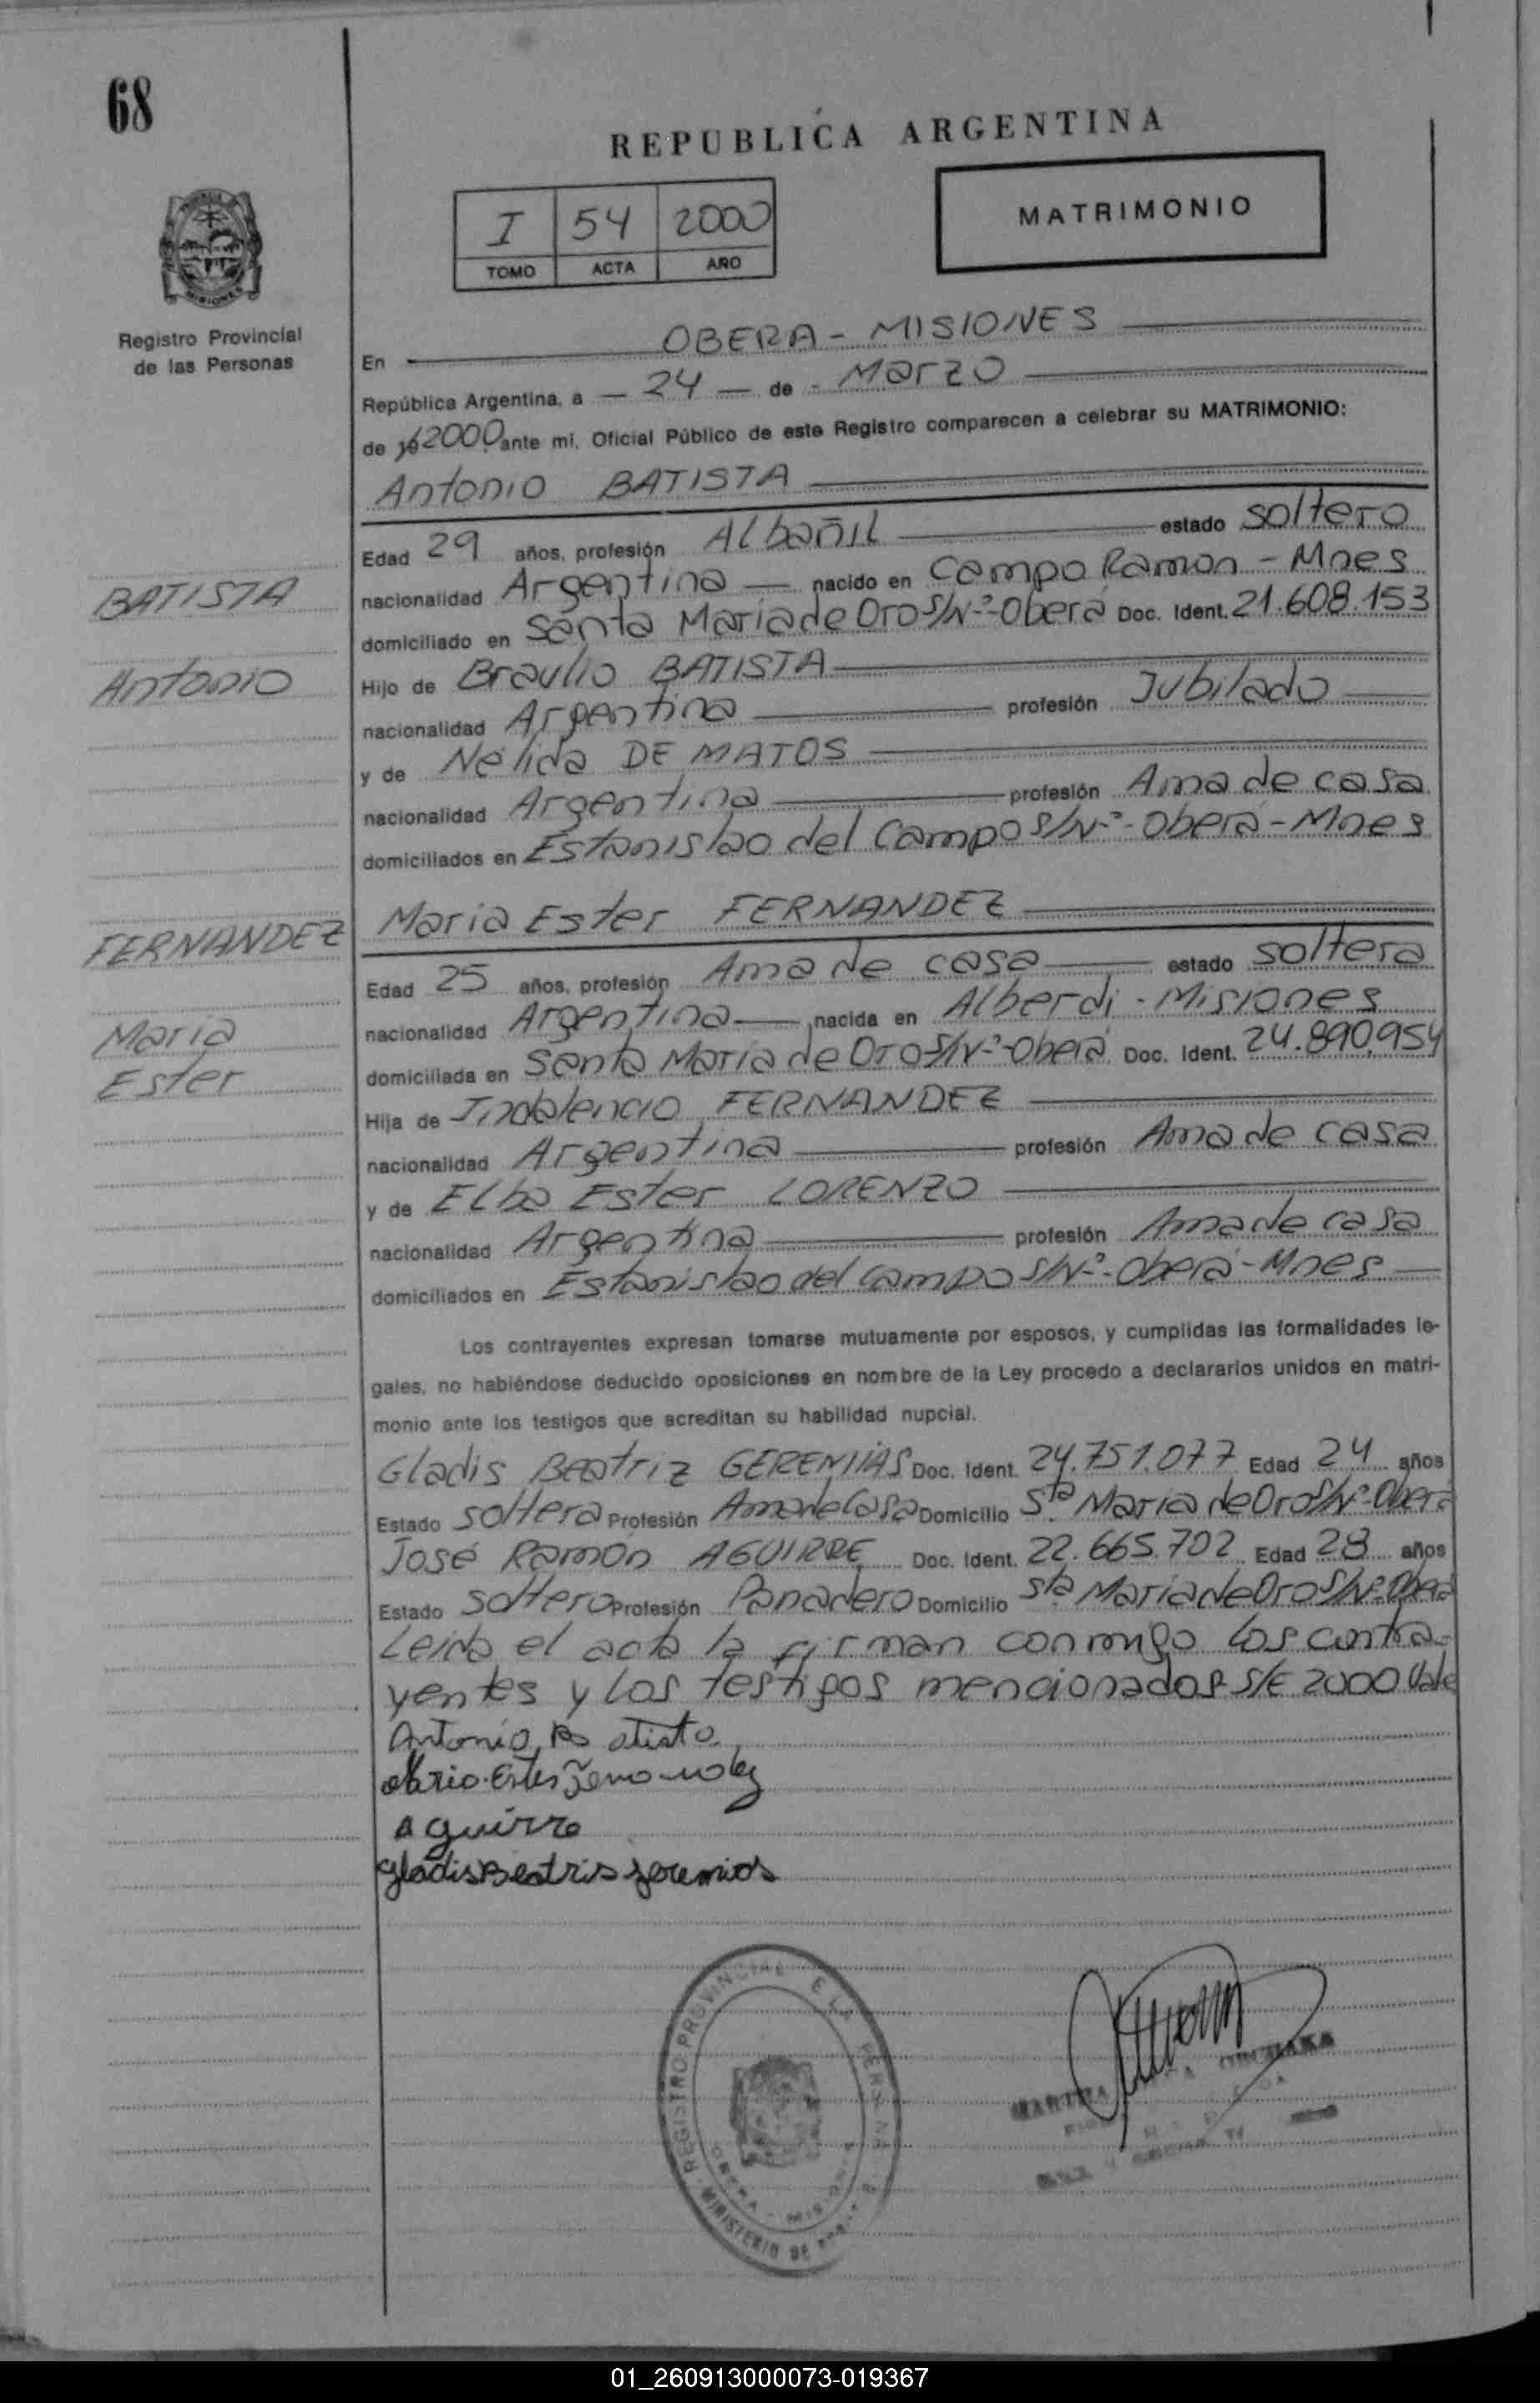 68
REPUBLICA ARGENTINA
I 54 2000
TOMO ACTA AÑO
MATRIMONIO
Registro Provincial
de las Personas
En OBERA - MISIONES
República Argentina, a - 24 - de - Marzo
de 19 2000 ante mí, Oficial Público de este Registro comparecen a celebrar su MATRIMONIO:
Antonio BATISTA
Edad 29 años, profesión Albañil estado soltero
BATISTA
nacionalidad Argentina nacido en Campo Ramon - Mnes
domiciliado en Santa María de Oro S/Nº - Oberá Doc. Ident. 21.608.153
Antonio
Hijo de Braulio BATISTA
nacionalidad Argentina profesión Jubilado
y de Nélida DE MATOS
nacionalidad Argentina profesión Ama de casa
domiciliados en Estanislao del Campo S/Nº - Oberá - Mnes
FERNANDEZ
Maria Ester FERNANDEZ
Edad 25 años, profesión Ama de casa estado soltera
Maria
Ester
nacionalidad Argentina nacida en Alberdi - Misiones
domiciliada en Santa María de Oro S/Nº - Oberá Doc. Ident. 24.890.954
Hija de FERNANDEZ
nacionalidad Argentina profesión Ama de casa
y de Elba Ester LORENZO
nacionalidad Argentina profesión Ama de casa
domiciliados en Estanislao del Campo S/Nº - Oberá - Mnes
Los contrayentes expresan tomarse mutuamente por esposos, y cumplidas las formalidades le-
gales, no habiéndose deducido oposiciones en nombre de la Ley procedo a declararlos unidos en matri-
monio ante los testigos que acreditan su habilidad nupcial.
Gladis Beatriz GEREMIAS Doc. Ident. 24.751.077 Edad 24 años
Estado soltera Profesión Ama de Casa Domicilio Sta Maria de Oro S/Nº - Oberá
José Ramon AGUIRRE Doc. Ident. 22.665.702 Edad 28 años
Estado soltero Profesión Panadero Domicilio Sta María de Oro S/Nº - Oberá
Leida el acta la firman conmigo los contra-
yentes y los testigos mencionados S/E 2000 Vale
Antonio Batista
Maria Ester Fernandez
Aguirre
Gladis Beatris Jeremias
REGISTRO PROVINCIAL
MINISTERIO DE
01_260913000073-019367